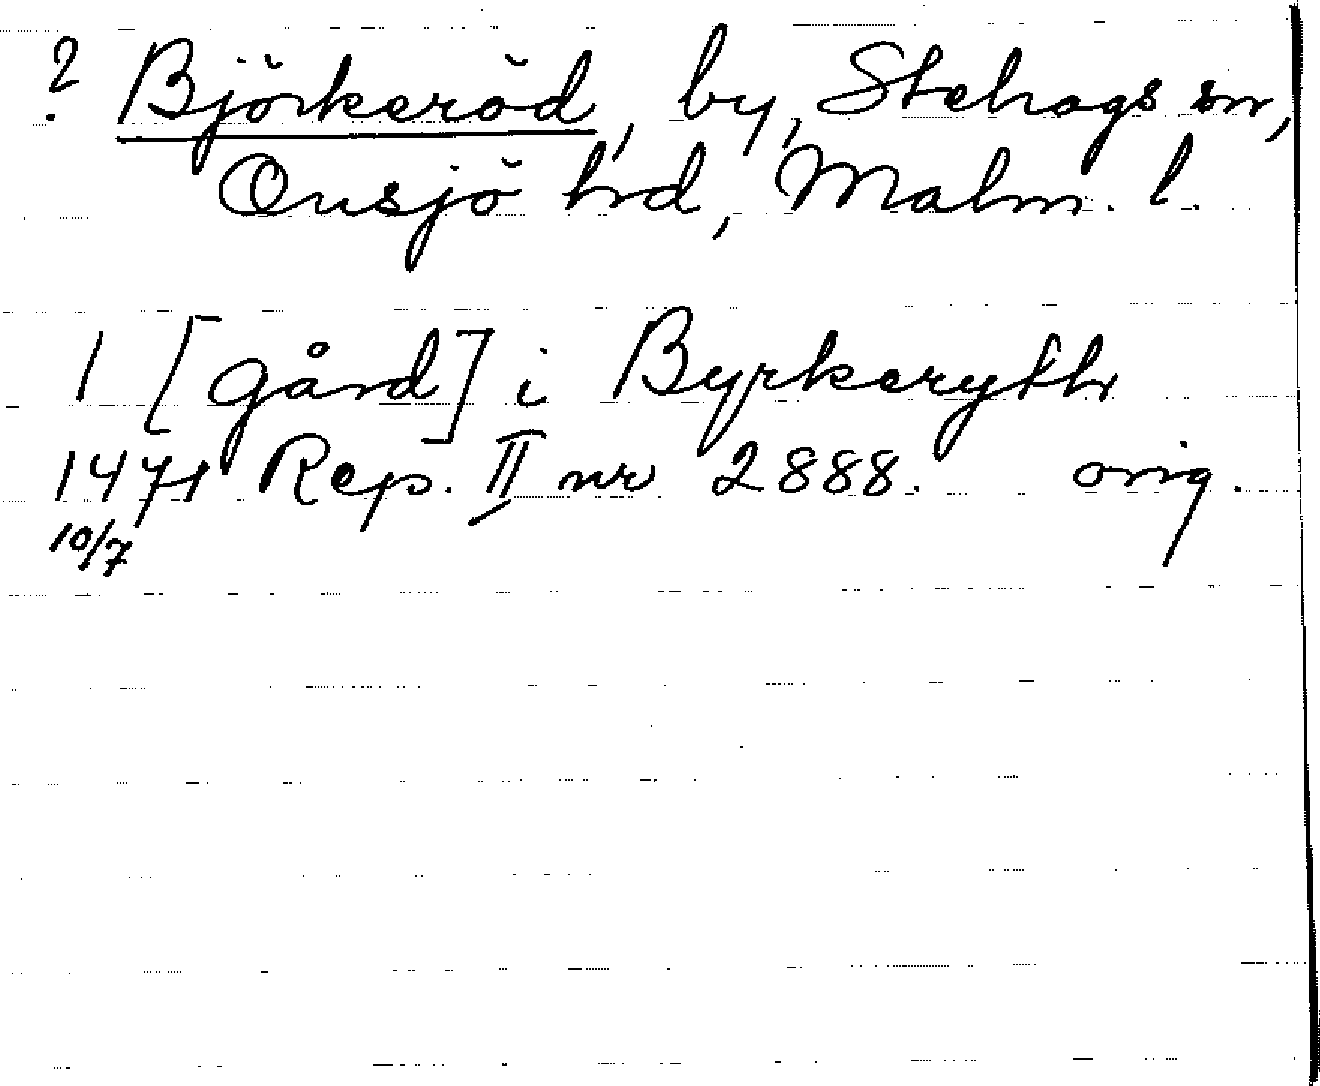 ? Björkeröd, by, Stehags sn,
Onsjö hd, Malm. l.
1 [gård] i Byrkerythr
1471 Rep. II nr 2888. orig.
10/7